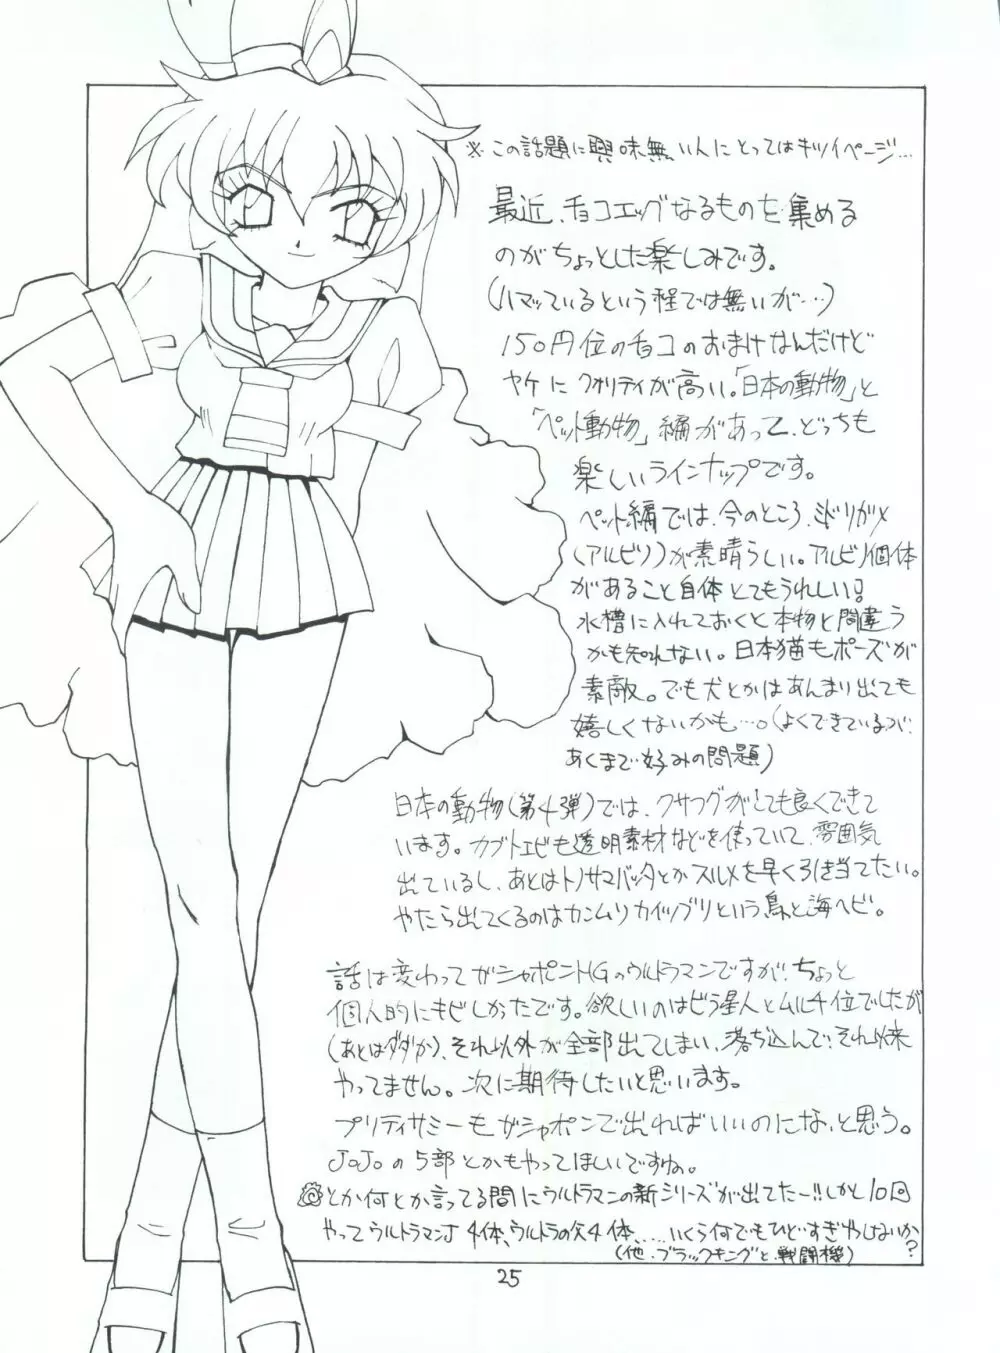 ※この話題に興味無い人にとってはキツイページ…
最近、チョコエッグなるものを集める
のがちょっとした楽しみです。
(ハマッているという程では無いが…)
150円位のチョコのおまけなんだけど
ヤケにクオリティが高い。「日本の動物」と
「ペット動物」編があって、どっちも
楽しいラインナップです。
ペット編では、今のところ、ミドリガメ
(アルビノ)が素晴らしい。アルビノ個体
があること自体とてもうれしい!
水槽に入れておくと本物と間違う
かも知れない。日本猫もポーズが
素敵。でも犬とかはあんまり出ても
嬉しくないかも…。(よくできているが、
あくまで好みの問題)
日本の動物(第4弾)では、クサフグがとても良くできて
います。カブトエビも透明素材などを使っていて、雰囲気
出ているし、あとはトノサマバッタとかスルメを早く引き当てたい。
やたら出てくるのはカンムリカイツブリという鳥と海ヘビ。
話は変わってガシャポンHGのウルトラマンですが、ちょっと
個人的にキビしかったです。欲しいのはビラ星人とムルチ位でしたが
(あとはダダか)、それ以外が全部出てしまい、落ち込んで、それ以来
やってません。次に期待したいと思います。
プリティサミーもガシャポンで出ればいいのにな、と思う。
JoJoの5部とかもやってほしいですね。
とか何とか言ってる間にウルトラマンの新シリーズが出てたー!!しかと10回
やってウルトラマンJ 4体、ウルトラの父4体、……いくら何でもひどすぎやしないか?
(他、ブラックキングと、戦闘機)
25